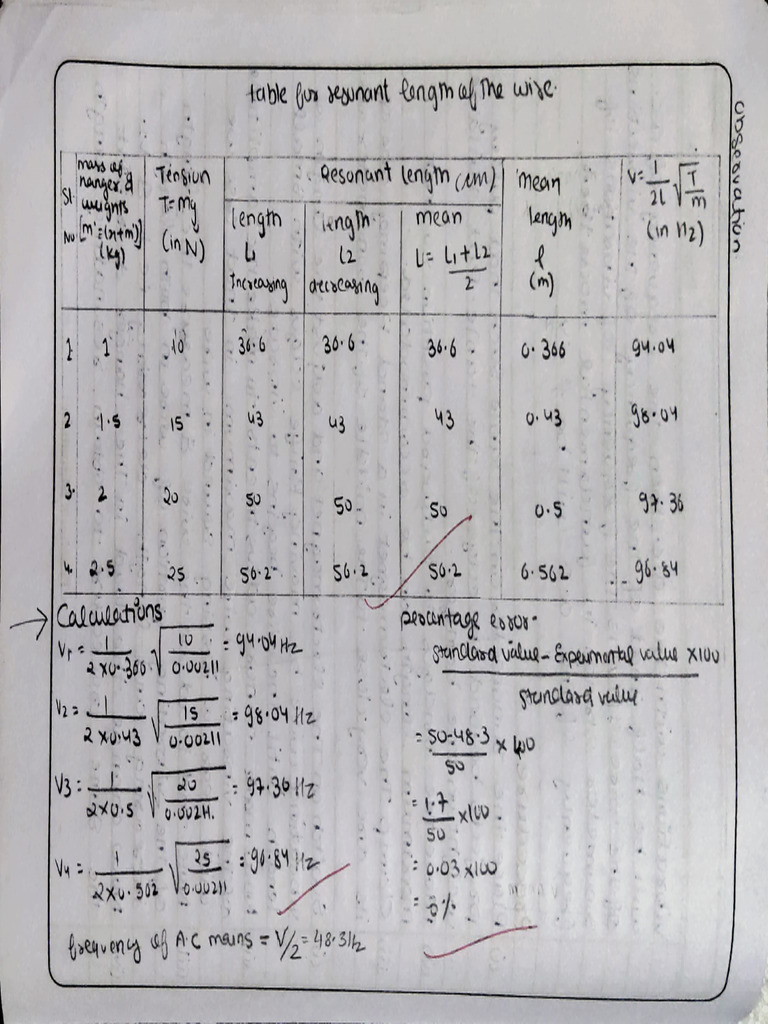 Observation
table for resonant length of the wire.
Sl. No
mass of hanger & weights [m'=(n+m)] (kg)
Tension T=mg (in N)
Resonant length (cm)
length L1 Increasing
length L2 decreasing
mean L= L1+L2/2
mean length l (m)
V= 1/2l √T/m (in Hz)
1. 1 10 36.6 36.6 36.6 0.366 94.04
2 1.5 15 43 43 43 0.43 98.04
3. 2 20 50 50 50 0.5 97.36
4. 2.5 25 56.2 56.2 56.2 0.562 96.84
→ Calculations
V1 = 1/2x0.366 √10/0.00211 = 94.04 Hz
V2 = 1/2x0.43 √15/0.00211 = 98.04 Hz
V3 = 1/2x0.5 √20/0.00211. = 97.36 Hz
V4 = 1/2x0.562 √25/0.00211 = 96.84 Hz
frequency of A.C mains = V/2 = 48.3Hz
percantage error.
standard value - Experimental value/standard value x100
= 50-48.3/50 x 100
= 1.7/50 x100.
= 0.03 x100